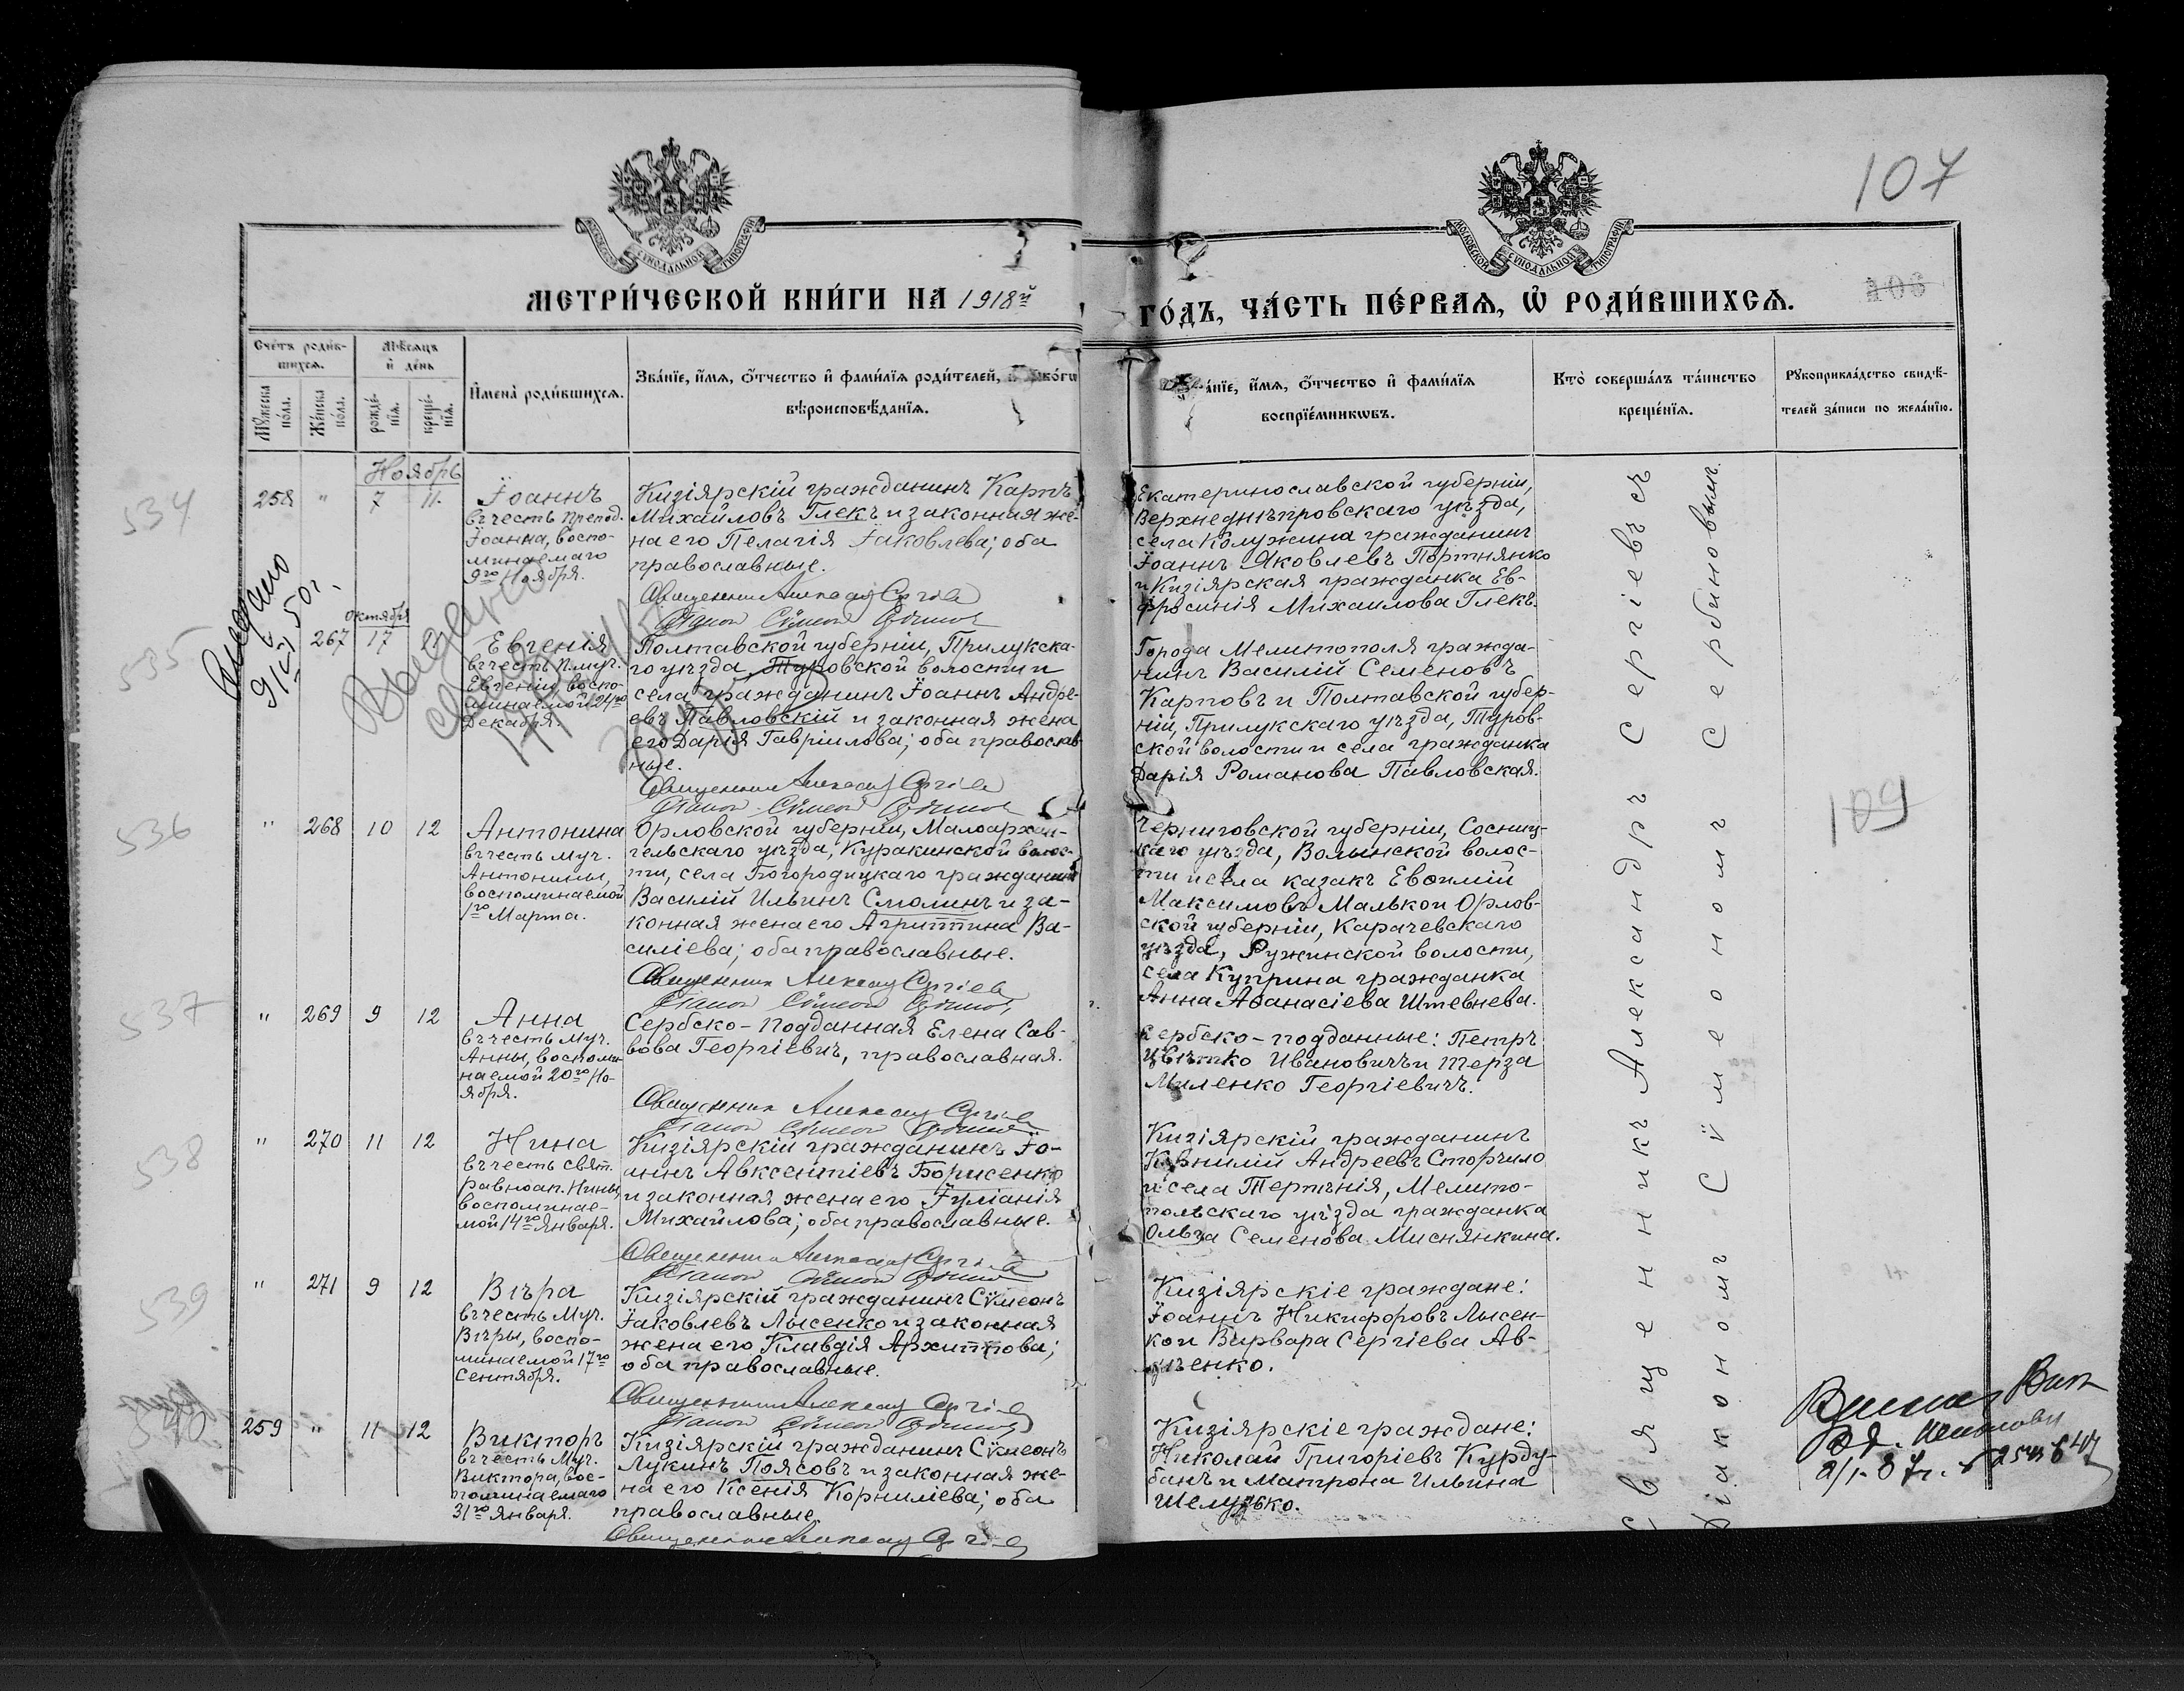 107
106
МЕТРИ́ЧЕСКОЙ КНИ́ГИ НА 1918й
ГО́ДЪ, ЧА́СТЬ ПЕ́РВАЯ, Ѿ РОДИ́ВШИХСЯ.
МОСКОВСКОЙ СѴНОДАЛЬНОЙ ТИПОГРАФІИ
МОСКОВСКОЙ СѴНОДАЛЬНОЙ ТИПОГРАФІИ
Сче́тъ роди́в-
шихся.
Мꙋ́жеска по́ла.
Же́нска по́ла.
Мѣ́сяцъ
и҆ де́нь
рожде́-
нїя.
креще́-
нїя.
И҆мена̀ роди́вшихся.
Зва́нїе, и҆́мя, ѻ҆́тчество и҆ фами́лїя роди́телей,
вѣроисповѣ́данїя.
и҆́мя, ѻ҆́тчество и҆ фами́лїя
воспрїе́мникѡвъ.
Кто̀ соверша́лъ та́инство
креще́нїя.
Рꙋкоприкла́дство свидѣ́-
телей за́писи по жела́нїю.
Ноябрь
534
258 " 7 11.
Іоаннъ
въ честь препод.
Іоанна, воспо-
минаемаго
9го Ноября.
Кизіярскій гражданинъ Карпъ
Михайловъ Глекъ и законная же-
на его Пелагія Іаковлева; оба
православные.
Священникъ Александръ Сергіевъ
Діаконъ Сѵмеонъ
Екатеринославской губерніи,
Верхнеднѣпровскаго уѣзда,
села Комужина гражданинъ
Іоаннъ Яковлевъ Портнянко
и Кизіярская гражданка Ев-
фросинія Михаилова Глекъ.
535
Октября
267 17
Евгенія
въ честь п.муч.
Евгеніи, воспо-
минаемой 24го
Декабря.
Полтавской губерніи, Прилукска-
го уѣзда, Туровской волости и
села гражданинъ Іоаннъ Андре-
евъ Павловскій и законная жена
его Дарія Гавріилова; оба православ-
ные.
Священникъ Александръ Сергіевъ
Діаконъ Сѵмеонъ
Города Мелитополя гражда-
нинъ Василій Семеновъ
Карповъ и Полтавской губер-
ніи, Прилукскаго уѣзда, Туров-
ской волости и села гражданка
Дарія Романова Павловская.
536
" 268 10 12
Антонина
въ честь муч.
Антонины,
воспоминаемой
1го Марта.
Орловской губерніи, Малоархан-
гельскаго уѣзда, Куракинской волос-
ти, села Богородицкаго гражданинъ
Василій Ильинъ Смолинъ и за-
конная жена его Агриппина Ва-
силіева; оба православные.
Священникъ Александръ Сергіевъ
Діаконъ Сѵмеонъ
Черниговской губерніи, Сосниц-
каго уѣзда, Волынской волос-
ти и села казакъ Евѳимій
Максимовъ Малько и Орлов-
ской губерніи, Карачевскаго
уѣзда, Ружинской волости,
села Куприна гражданка
Анна Аѳанасіева Штевнева.
109
537
" 269 9 12
Анна
въ честь муч.
Анны, воспоми-
наемой 20го Но-
ября.
Сербско-подданная Елена Сав-
вова Георгіевичъ, православная.
Священникъ Александръ Сергіевъ
Діаконъ Сѵмеонъ
Сербско-подданные: Петръ
Цвѣтко Ивановичъ и Терза
Миленко Георгіевичъ.
538
" 270 11 12
Нина
въ честь свят.
равноап. Нины,
воспоминае-
мой 14го Января.
Кизіярскій гражданинъ Іо-
аннъ Авксентіевъ Борисенко
и законная жена его Іуліанія
Михайлова; оба православные.
Священникъ Александръ Сергіевъ
Діаконъ Сѵмеонъ
Кизіярскій гражданинъ
Корнилій Андреевъ Сторчило
и села Терпѣнія, Мелито-
польскаго уѣзда гражданка
Ольга Семенова Миснянкина.
539
" 271 9 12
Вѣра
въ честь муч.
Вѣры, воспо-
минаемой 17го
Сентября.
Кизіярскій гражданинъ Сѵмеонъ
Іаковлевъ Лысенко и законная
жена его Клавдія Архиппова;
оба православные.
Священникъ Александръ Сергіевъ
Діаконъ Сѵмеонъ
Кизіярскіе граждане:
Іоаннъ Никифоровъ Лысен-
ко и Варвара Сергіева Ав-
540
259 " 11 12
Викторъ
въ честь муч.
Виктора, вос-
поминаемаго
31го Января.
Кизіярскій гражданинъ Сѵмеонъ
Лукинъ Поясовъ и законная же-
на его Ксенія Корниліева; оба
православные.
Священникъ Александръ Сергіевъ
Кизіярскіе граждане:
Николай Григоріевъ Курду-
банъ и Матрона Ильина
Шелудько.
Священникъ Александръ Сергіевъ съ
Діакономъ Сѵмеономъ Сербиновымъ.